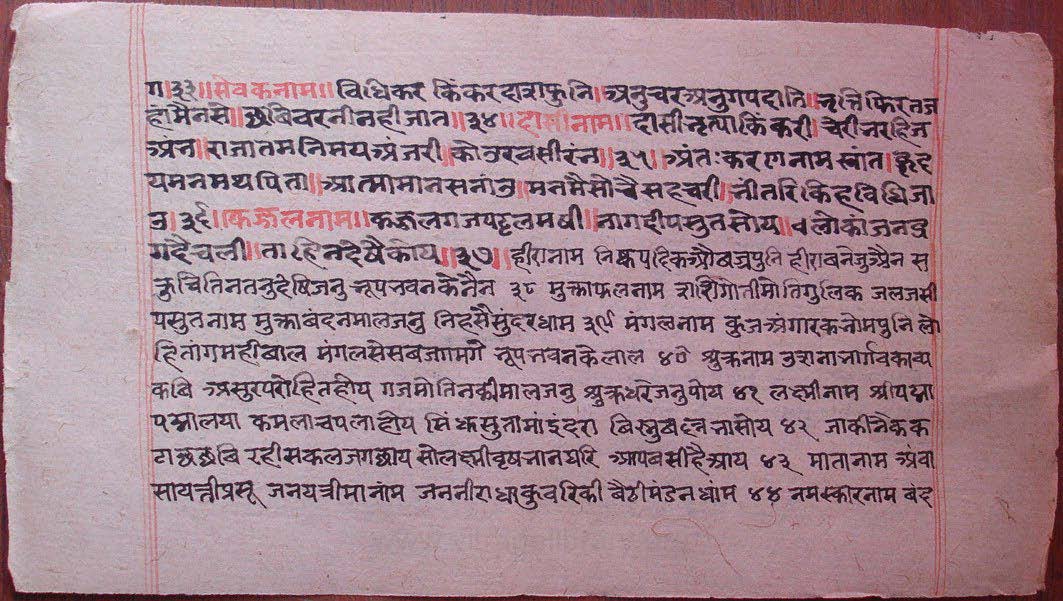 ग।३३॥सेवकनाम॥विधिकर किंकर दासफुनि।अनुचरअनुगपदाति।नृत्तिफिरतज
हांमैनसे॥छविवरनीनहीजात॥३४॥दासीनाम॥दासीनृत्याकिंकरी।चेरीनरहिज
अन।राजातमनिमयअंजरी।कोउरवसीरंन॥३५।अंतःकरणनामस्वांत।हृद
यमनमथपिता॥आत्मामानसनांउ।मनमैसोचैसहचरी।नीतरिकिहविधिजा
उ॥३६॥कज्जलनाम॥कज्जलगजपट्टलमषी॥नागदीपसुतसोय।चलोकांजनद्र
गदैचली॥ताहिनदेषैकोय॥३७॥ हीरानाम निष्कपदिकऔवज्रपुनि हीराबनेजुऐन सु
कुचितिनतनुदेषिजनु नूपनवनकेनैन ३८ मुक्ताफलनाम शशिगोतीमोतिगुलिक जलजसी
पसुतनाम मुक्तावंदनमालजनु निहसैसुंदरधाम ३९ मंगलनाम कुजअंगारकनोमपुनि लो
हितांगमहीबाल मंगलसेसबजगमगे नूपनवनकेलाल ४० शुक्रनाम उशनानार्गवकाव्य
कवि असुरपरोहितहोय गजमोतिनकीमालजनु शुक्रधरेजनुपोय ४१ लक्ष्मीनाम श्रीपद्मा
पद्मालया कमलाचपलाहोय सिंधुसुतामांइंदरा विस्नुवल्लनासोय ४२ जाकीनैकक
टाछछवि रहीसकलजगछाय सोलक्ष्मीवृषनानघरि आपबसीहैआय ४३ मातानाम अंवा
सायत्रीप्रसू जनयत्रीमानांम जननीराधाकुवरिकी बैठीमंडनधांम ४४ नमस्कारनाम बंद